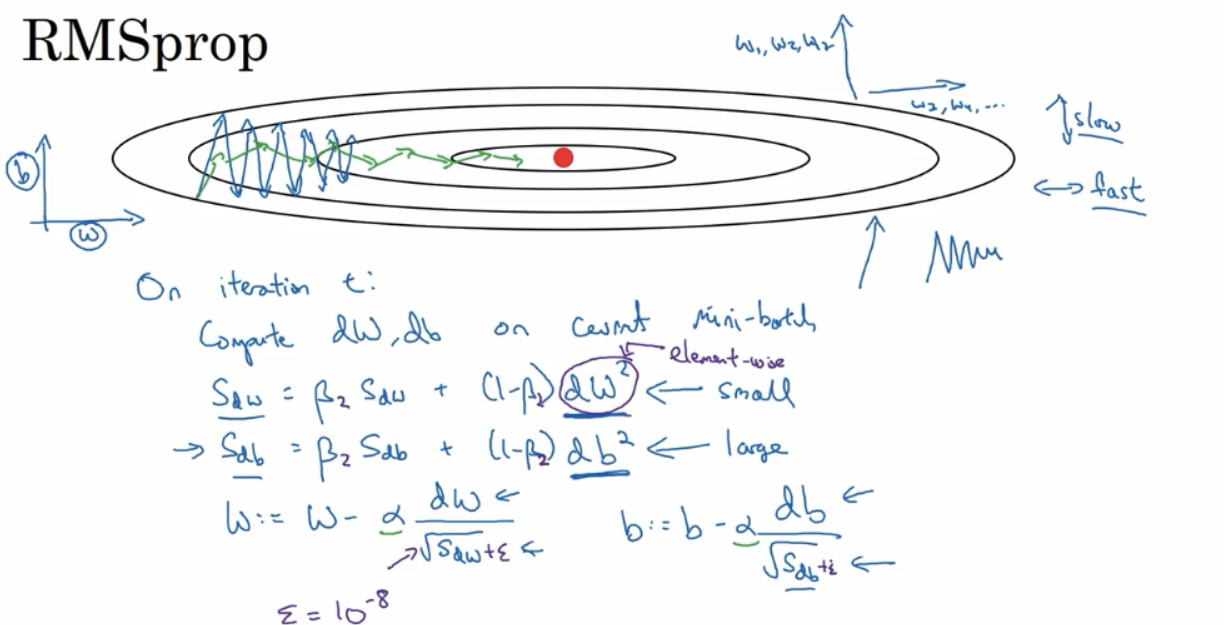 RMSprop
w₁, w₂, w₂
w₃, w₄, ...
↕ slow
↔ fast
b
w
On iteration t:
Compute dW, db on current mini-batch
element-wise
S_dw = β₂ S_dw + (1-β₂) dW² ← small
→ S_db = β₂ S_db + (1-β₂) db² ← large
W := W - α dW / √S_dw + ε ←
b := b - α db / √S_db + ε ←
ε = 10⁻⁸